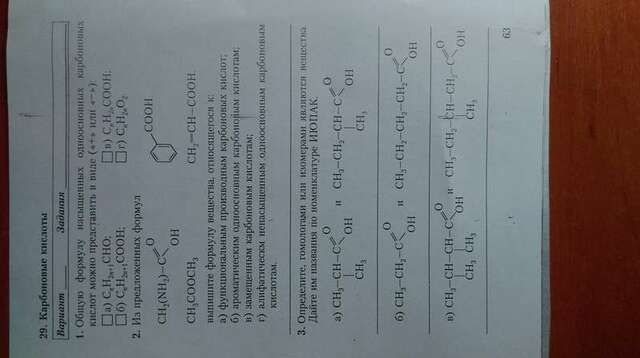 29. Карбоновые кислоты
Вариант Задания
1. Общую формулу насыщенных одноосновных карбоновых
кислот можно представить в виде («+» или «−»):
а) CₙH₂ₙ₊₁CHO; в) CₙH₂ₙCOOH;
б) CₙH₂ₙ₊₁COOH; г) CₙH₂ₙO₂.
2. Из предложенных формул
CH₂(NH₂)—C O OH COOH
CH₃COOCH₃ CH₂—CH—COOH.
выпишите формулу вещества, относящегося к:
а) функциональным производным карбоновых кислот;
б) ароматическим одноосновным карбоновым кислотам;
в) замещенным карбоновым кислотам;
г) алифатическм ненасыщенным одноосновным карбоновым
кислотам.
3. Определите, гомологами или изомерами являются вещества
Дайте им названия по номенклатуре ИЮПАК.
а) CH₃—CH—C O OH CH₃ и CH₃—CH₂—CH—C O OH CH₃
б) CH₃—CH₂—C O OH и CH₃—CH₂—CH₂—CH₂—C O OH
в) CH₃—CH—CH—C O OH CH₃ и CH₃—CH₂—CH—CH₂—C O OH CH₃
63